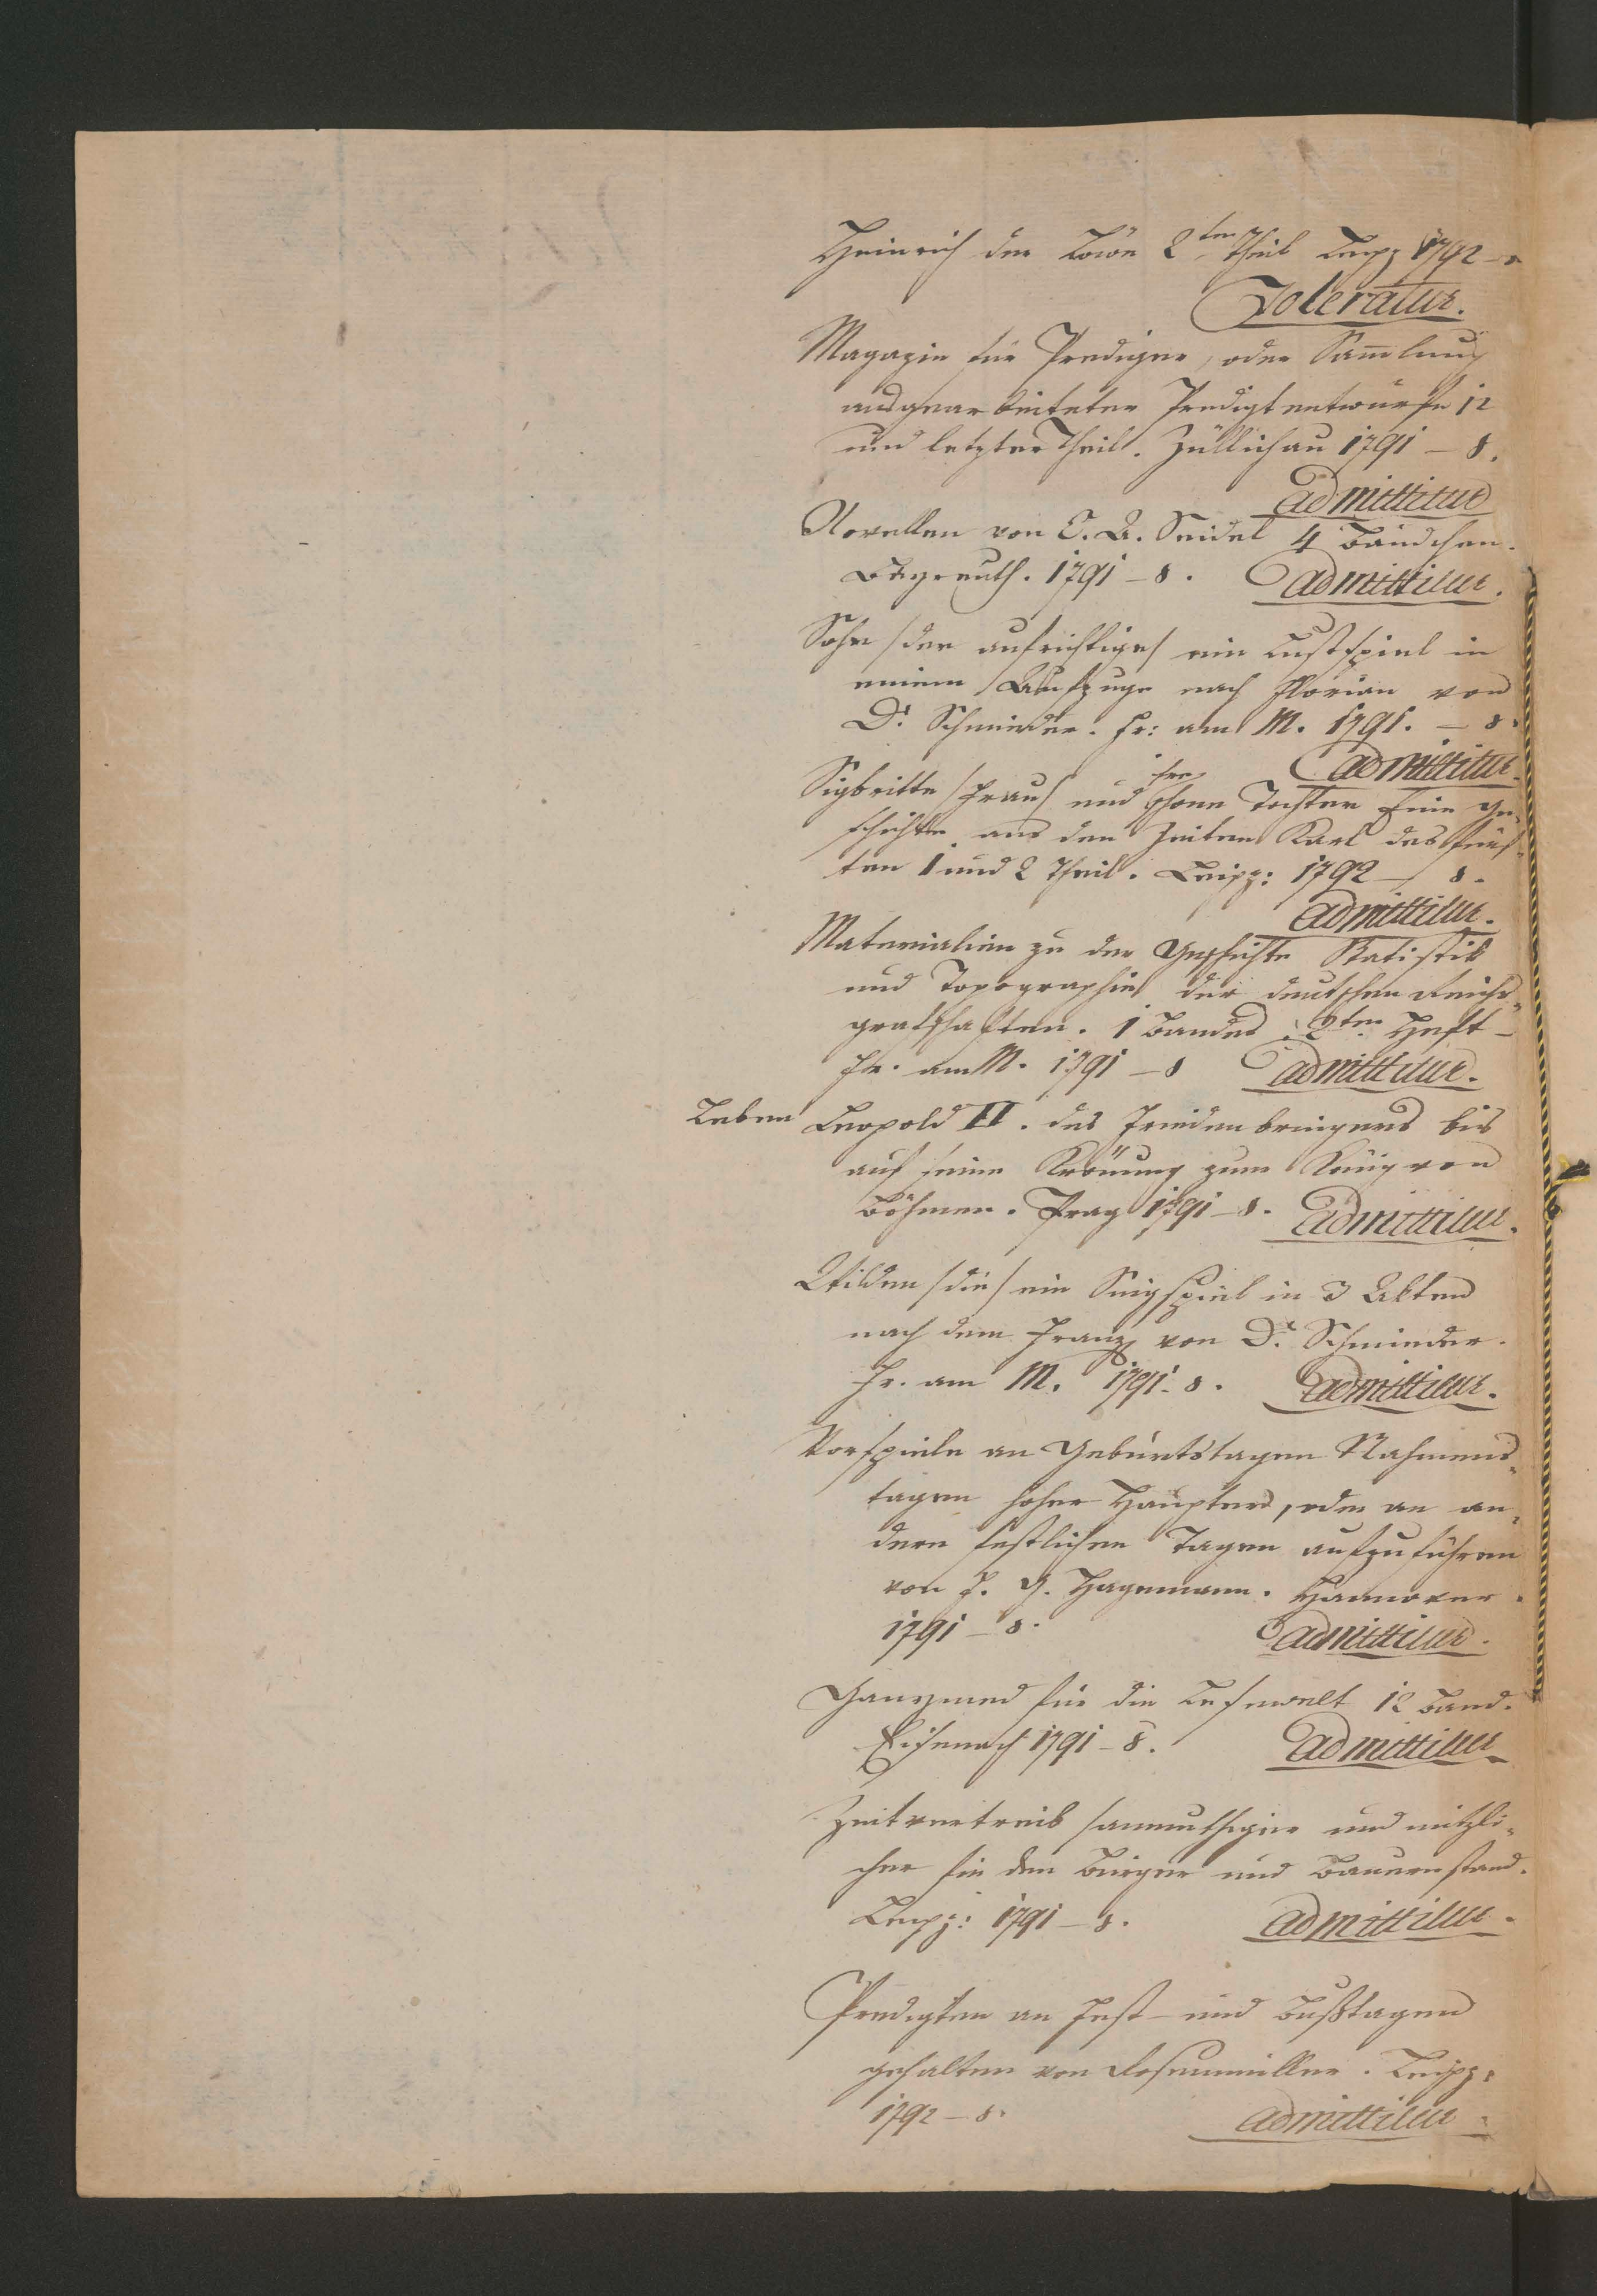 Heinrich der Löwe 2ter Theil Leipz 1792 – 8
Toleratur.
Magazin für Prediger, oder Sammlung
ausgearbeiteter Predigtentwürfe 12
und letzter Theil. Züllichau 1791 – 8.
admittitur
Novellen von C. A. Seidel 4 Bändchen.
Bayreuth. 1791 – 8. admittitur.
Sohn /der aufrichtige/ ein Lustspiel in
einem Aufzuge nach Florian von
Dr Schmieder. Fr: am M. 1791. – 8.
admittitur.
Sigbritte /Frau/ und ihre schöne Tochter Eine Ge-
schichte aus den Zeiten Karl des fünf-
ten 1 und 2 Theil. Leipz: 1792 – 8.
admittitur.
Materialien zu der Geschichte Statistik
und Topographie der deutschen Reichs-
grafschaften. 1 Bandes 2ter Heft –
Fr. am M. 1791 – 8 admittitur.
Leben Leopold II. des Friedenbringers bis
auf seine Krönung zum König von
Böhmen. Prag 1791 – 8. admittitur.
Wilden /die/ ein Singspiel in 3 Akten
nach dem Franz von Dr Schmieder.
Fr. am M. 1791. 8. admittitur.
Vorspiele an Geburtstagen Nahmens-
tagen hoher Häupter, oder an an-
dern festlichen Tagen aufzuführen
von F. G. Hagemann. Hannover.
1791 – 8. admittitur.
Ganymed für die Lesewelt 12 Band.
Eisenach 1791 – 8. admittitur
Zeitvertreib /anmuthiger und nützli-
cher für den Bürger und Bauernstand.
Leipz: 1791 – 8. admittitur.
Predigten an Fest- und Bußtagen
gehalten von Rosenmüller. Leipz:
1792 – 8. admittitur.